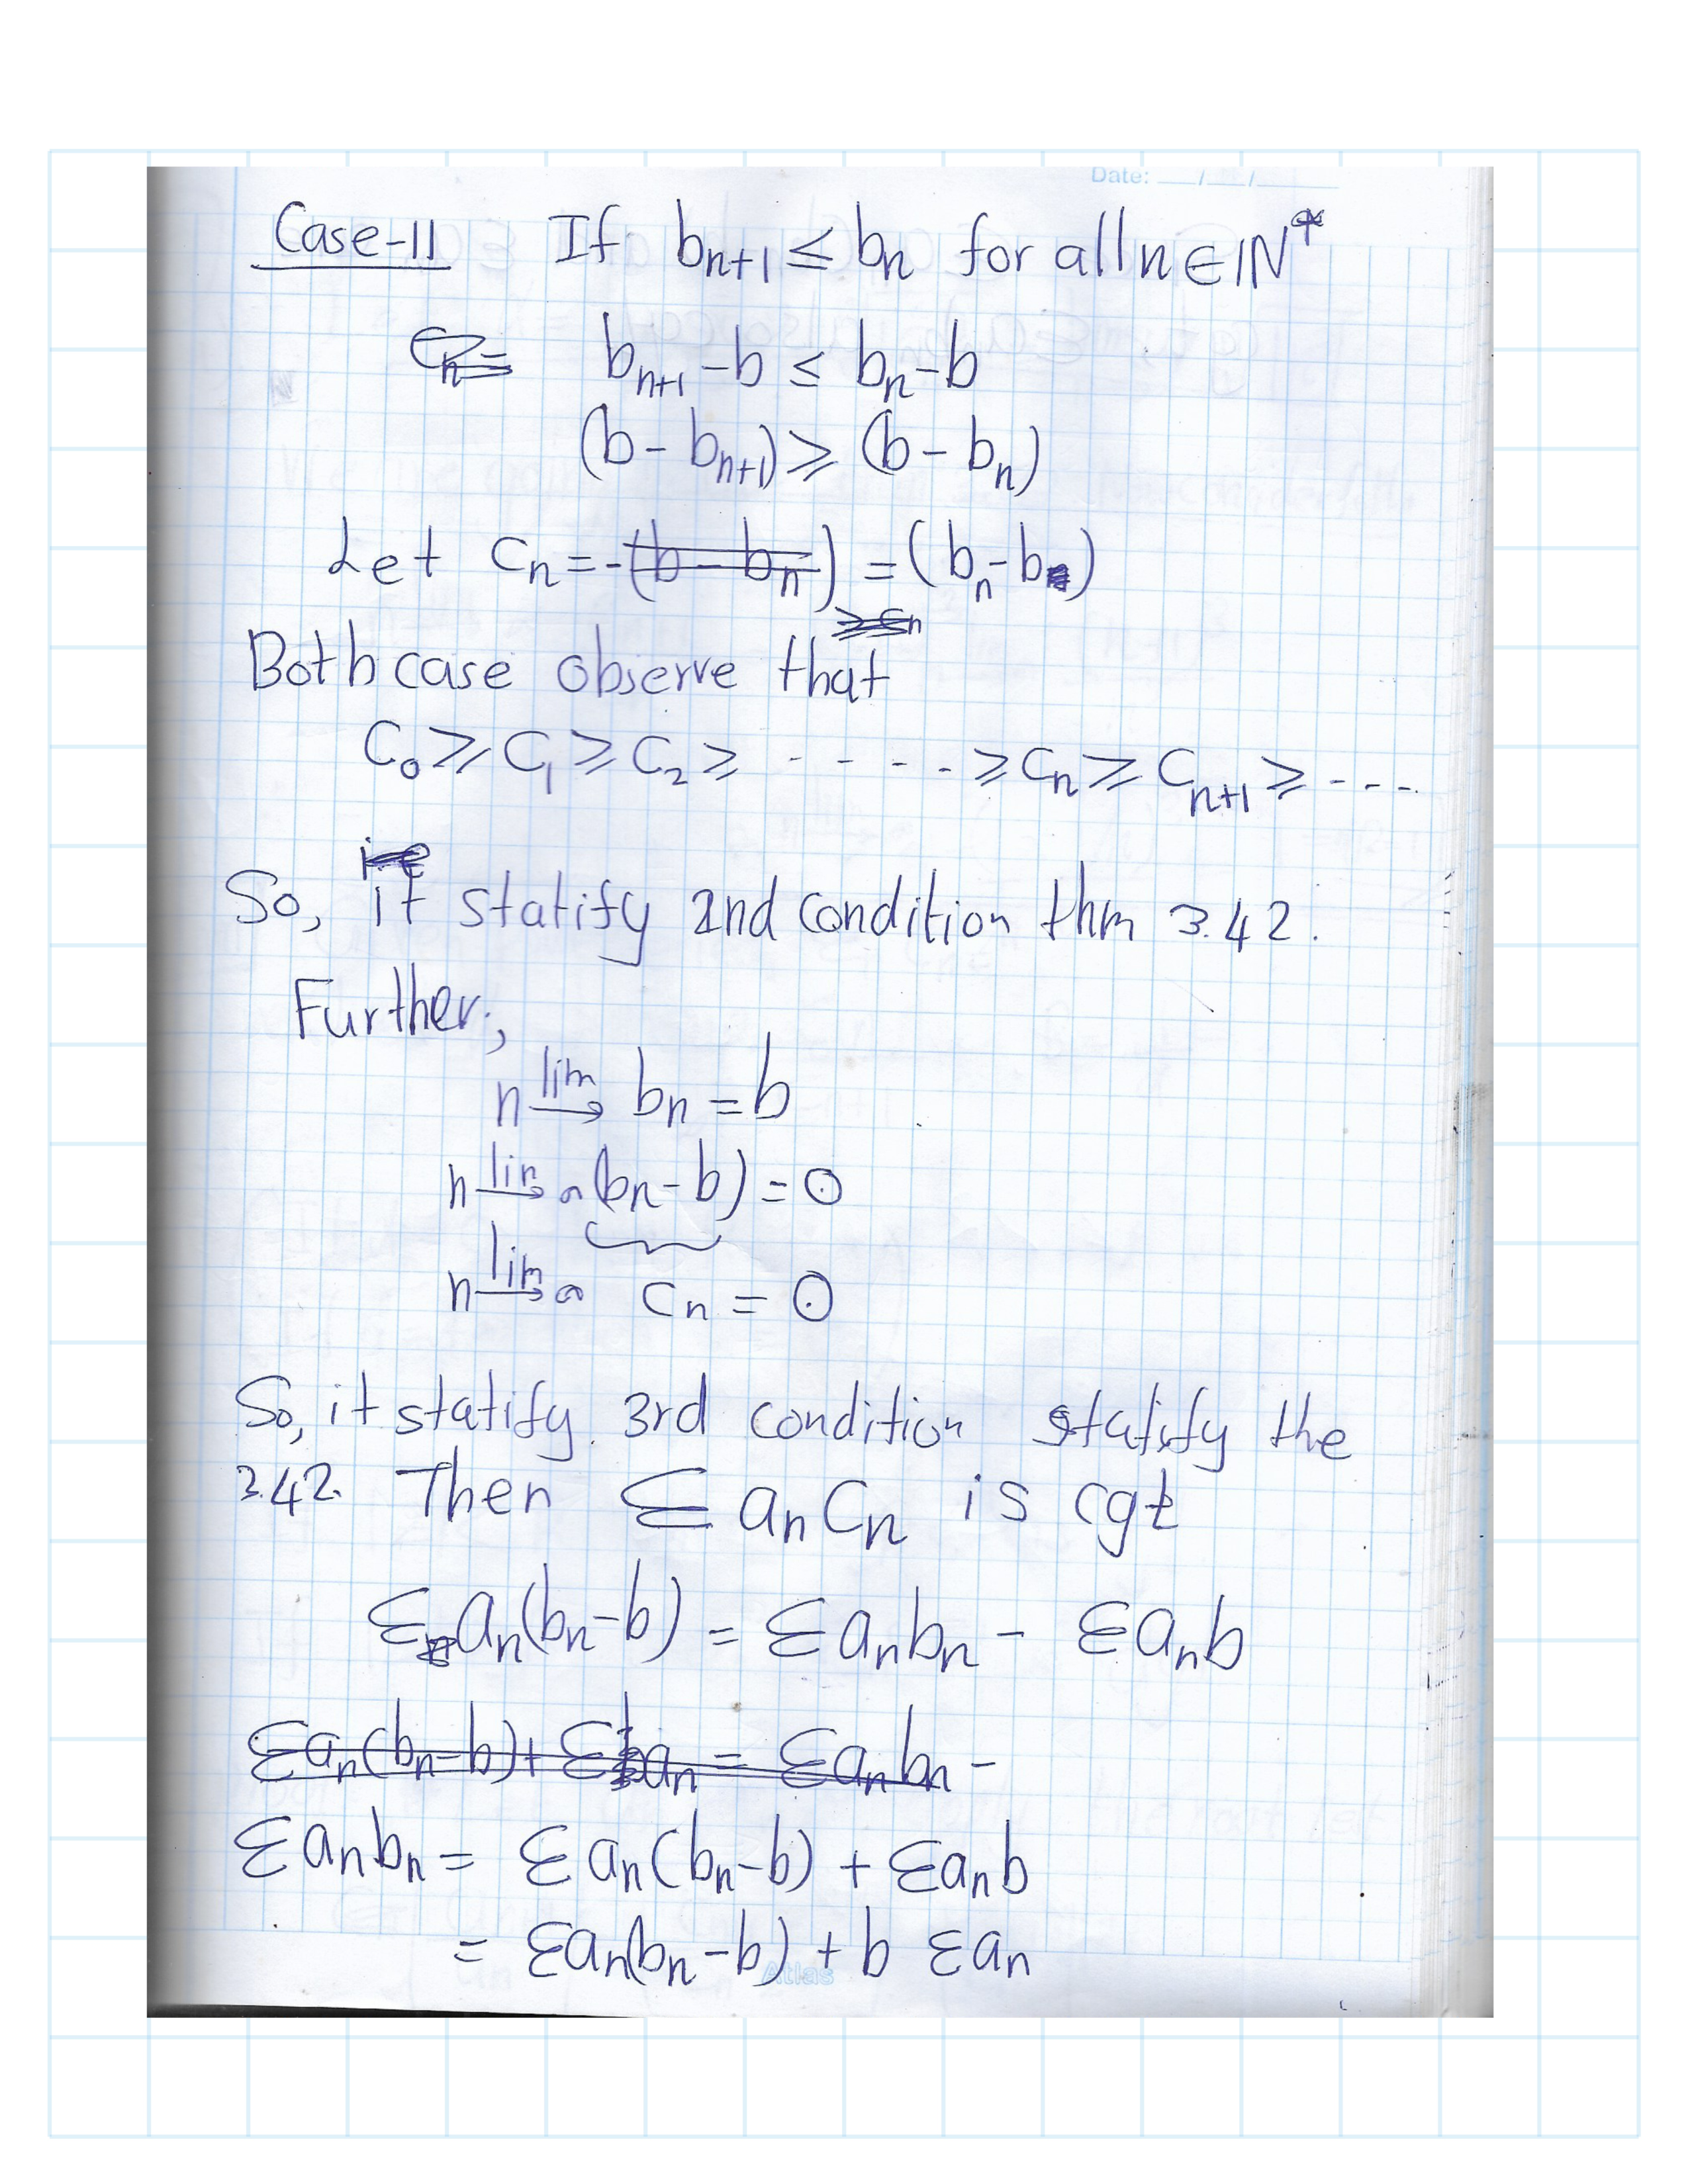 Date: __/__/____
Case-II If bn+1 ≤ bn for all n ∈ IN*
Cn= bn+1 - b ≤ bn - b
(b - bn+1) ≥ (b - bn)
Let Cn = -(b - bn) = (bn - b)
≥ Cn
Both case observe that
C0 ≥ C1 ≥ C2 ≥ - - - - ≥ Cn ≥ Cn+1 ≥ - - -
i.e
So, it statify 2nd condition thm 3.42.
Further,
n lim→ bn = b
n lim→∞ (bn - b) = 0
n lim→∞ Cn = 0
So, it statify 3rd condition statify the
3.42. Then Σ an Cn is cgt
Σ an(bn - b) = Σ an bn - Σ an b
Σ an(bn - b) + Σ b an = Σ an bn -
Σ an bn = Σ an (bn - b) + Σ an b
= Σ an(bn - b) + b Σ an
Atlas